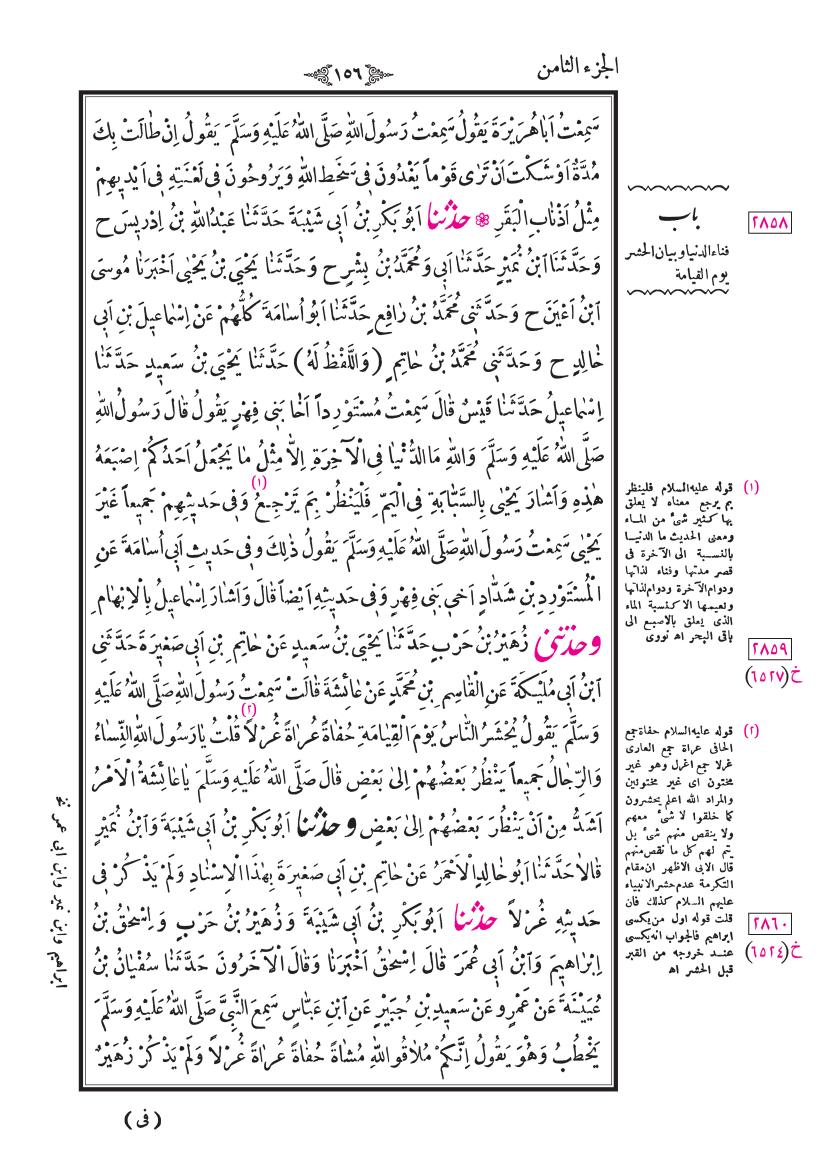 الجزء الثامن
١٥٦
سَمِعْتُ اَبَا هُرَيْرَةَ يَقُولُ سَمِعْتُ رَسُولَ اللهِ صَلَّى اللهُ عَلَيْهِ وَسَلَّمَ يَقُولُ اِنْ طَالَتْ بِكَ
مُدَّةٌ اَوْشَكْتَ اَنْ تَرٰى قَوْماً يَغْدُونَ فِى سَخَطِ اللهِ وَيَرُوحُونَ فِى لَعْنَتِهِ فِى اَيْدِيهِمْ
مِثْلُ اَذْنَابِ الْبَقَرِ ❁ حَدَّثَنَا اَبُو بَكْرِ بْنُ اَبِى شَيْبَةَ حَدَّثَنَا عَبْدُ اللهِ بْنُ اِدْرِيسَ ح
وَحَدَّثَنَا ابْنُ نُمَيْرٍ حَدَّثَنَا اَبِى وَمُحَمَّدُ بْنُ بِشْرٍ ح وَحَدَّثَنَا يَحْيَى بْنُ يَحْيٰى اَخْبَرَنَا مُوسَى
ابْنُ اَعْيَنَ ح وَحَدَّثَنِى مُحَمَّدُ بْنُ رَافِعٍ حَدَّثَنَا اَبُو اُسَامَةَ كُلُّهُمْ عَنْ اِسْمَاعِيلَ بْنِ اَبِى
خَالِدٍ ح وَحَدَّثَنِى مُحَمَّدُ بْنُ حَاتِمٍ (وَاللَّفْظُ لَهُ) حَدَّثَنَا يَحْيَى بْنُ سَعِيدٍ حَدَّثَنَا
اِسْمَاعِيلُ حَدَّثَنَا قَيْسٌ قَالَ سَمِعْتُ مُسْتَوْرِداً اَخَا بَنِى فِهْرٍ يَقُولُ قَالَ رَسُولُ اللهِ
صَلَّى اللهُ عَلَيْهِ وَسَلَّمَ وَاللهِ مَا الدُّنْيَا فِى الْآخِرَةِ اِلَّا مِثْلُ مَا يَجْعَلُ اَحَدُكُمْ اِصْبَعَهُ
هٰذِهِ وَاَشَارَ يَحْيٰى بِالسَّبَّابَةِ فِى الْيَمِّ فَلْيَنْظُرْ بِمَ تَرْجِعُ (١) وَفِى حَدِيثِهِمْ جَمِيعاً غَيْرَ
يَحْيٰى سَمِعْتُ رَسُولَ اللهِ صَلَّى اللهُ عَلَيْهِ وَسَلَّمَ يَقُولُ ذٰلِكَ وَفِى حَدِيثِ اَبِى اُسَامَةَ عَنِ
الْمُسْتَوْرِدِ بْنِ شَدَّادٍ اَخِى بَنِى فِهْرٍ وَفِى حَدِيثِهِ اَيْضاً قَالَ وَاَشَارَ اِسْمَاعِيلُ بِالْاِبْهَامِ
وَحَدَّثَنِى زُهَيْرُ بْنُ حَرْبٍ حَدَّثَنَا يَحْيَى بْنُ سَعِيدٍ عَنْ حَاتِمِ بْنِ اَبِى صَغِيرَةَ حَدَّثَنِى
ابْنُ اَبِى مُلَيْكَةَ عَنِ الْقَاسِمِ بْنِ مُحَمَّدٍ عَنْ عَائِشَةَ قَالَتْ سَمِعْتُ رَسُولَ اللهِ صَلَّى اللهُ عَلَيْهِ
وَسَلَّمَ يَقُولُ يُحْشَرُ النَّاسُ يَوْمَ الْقِيَامَةِ حُفَاةً عُرَاةً غُرْلاً (٢) قُلْتُ يَا رَسُولَ اللهِ النِّسَاءُ
وَالرِّجَالُ جَمِيعاً يَنْظُرُ بَعْضُهُمْ اِلٰى بَعْضٍ قَالَ صَلَّى اللهُ عَلَيْهِ وَسَلَّمَ يَا عَائِشَةُ الْاَمْرُ
اَشَدُّ مِنْ اَنْ يَنْظُرَ بَعْضُهُمْ اِلٰى بَعْضٍ وَحَدَّثَنَا اَبُو بَكْرِ بْنُ اَبِى شَيْبَةَ وَابْنُ نُمَيْرٍ
قَالَا حَدَّثَنَا اَبُو خَالِدٍ الْاَحْمَرُ عَنْ حَاتِمِ بْنِ اَبِى صَغِيرَةَ بِهٰذَا الْاِسْنَادِ وَلَمْ يَذْكُرْ فِى
حَدِيثِهِ غُرْلاً حَدَّثَنَا اَبُو بَكْرِ بْنُ اَبِى شَيْبَةَ وَزُهَيْرُ بْنُ حَرْبٍ وَاِسْحٰقُ بْنُ
اِبْرَاهِيمَ وَابْنُ اَبِى عُمَرَ قَالَ اِسْحٰقُ اَخْبَرَنَا وَقَالَ الْآخَرُونَ حَدَّثَنَا سُفْيَانُ بْنُ
عُيَيْنَةَ عَنْ عَمْرٍو عَنْ سَعِيدِ بْنِ جُبَيْرٍ عَنِ ابْنِ عَبَّاسٍ سَمِعَ النَّبِىَّ صَلَّى اللهُ عَلَيْهِ وَسَلَّمَ
يَخْطُبُ وَهُوَ يَقُولُ اِنَّكُمْ مُلَاقُو اللهِ مُشَاةً حُفَاةً عُرَاةً غُرْلاً وَلَمْ يَذْكُرْ زُهَيْرٌ
باب
فناء الدنيا وبيان الحشر
يوم القيامة
٢٨٥٨
(١) قوله عليه السلام فلينظر
بم يرجع معناه لا يعلق
بها كثير شئ من الماء
ومعنى الحديث ما الدنيا
بالنسبة الى الآخرة فى
قصر مدتها وفناء لذاتها
ودوام الآخرة ودوام لذاتها
ونعيمها الا كنسبة الماء
الذى يعلق بالاصبع الى
باقى البحر اه نووى
٢٨٥٩
خ (٦٥٢٧)
(٢) قوله عليه السلام حفاة جمع
الحافى عراة جمع العارى
غرلا جمع اغرل وهو غير
مختون اى غير مختونين
والمراد الله اعلم يحشرون
كما خلقوا لا شئ معهم
ولا ينقص منهم شئ بل
يتم لهم كل ما نقص منهم
قال الابى الاظهر ان مقام
التكرمة عدم حشر الانبياء
عليهم السلام كذلك فان
قلت قوله اول من يكسى
ابراهيم فالجواب انه يكسى
عند خروجه من القبر
قبل الحشر اه
٢٨٦٠
خ (٦٥٢٤)
ابراهيم وابن نمير وابن ابى عمر نخ
(فى)